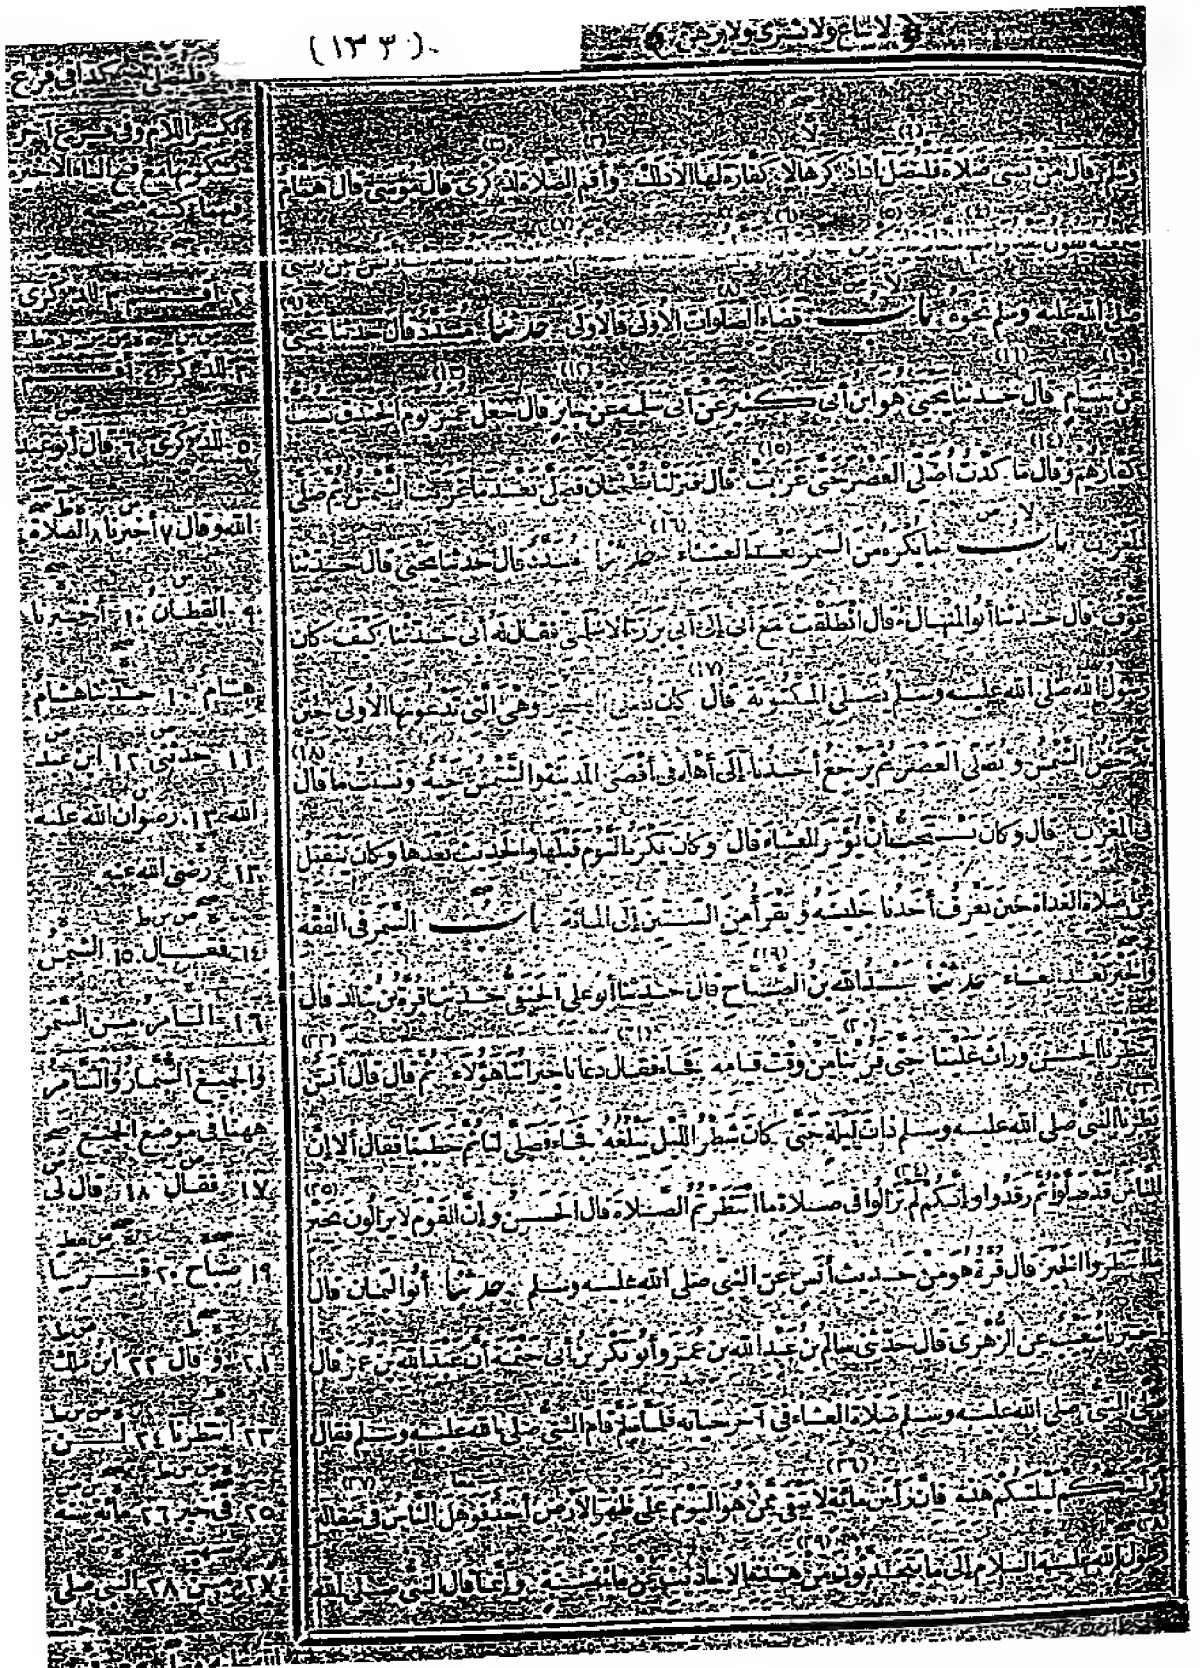 لا تباع ولا تشترى ولا ترهن
(١٣٣٠)
وسلم قال من نسي صلاة فليصل اذا ذكرها لا كفارة لها الا ذلك وأقم الصلاة لذكرى قال موسى قال همام
صلى الله عليه وسلم نحوه باب قضاء الصلوات الاولى فالاولى حدثنا مسدد قال حدثنا يحيى
قال حدثنا يحيى هو ابن أبى كثير عن أبى سلمة عن جابر قال جعل عمر يوم الخندق يسب
كفارهم وقال ما كدت أصلى العصر حتى غربت قال فنزلنا بطحان فصلى بعد ما غربت الشمس ثم صلى
المغرب باب ما يكره من السمر بعد العشاء حدثنا مسدد قال حدثنا يحيى قال حدثنا
عوف قال حدثنا أبو المنهال قال انطلقت مع أبى إلى أبى برزة الاسلمى فقال له أبى حدثنا كيف كان
رسول الله صلى الله عليه وسلم يصلى المكتوبة قال كان يصلى الهجير وهى التى تدعونها الاولى حين
تدحض الشمس ويصلى العصر ثم يرجع أحدنا إلى أهله فى أقصى المدينة والشمس حية ونسيت ما قال
فى المغرب قال وكان يستحب أن يؤخر العشاء قال وكان يكره النوم قبلها والحديث بعدها وكان ينفتل
من صلاة الغداة حين يعرف أحدنا جليسه ويقرأ من الستين إلى المائة باب السمر فى الفقه
والخير بعد العشاء حدثنا عبد الله بن الصباح قال حدثنا أبو على الحنفى حدثنا قرة بن خالد قال
انتظرنا الحسن وراث علينا حتى قربنا من وقت قيامه فجاء فقال دعانا جيراننا هؤلاء ثم قال قال أنس
نظرنا النبى صلى الله عليه وسلم ذات ليلة حتى كان شطر الليل يبلغه فجاء فصلى لنا ثم خطبنا فقال ألا إن
الناس قد صلوا ثم رقدوا وإنكم لم تزالوا فى صلاة ما انتظرتم الصلاة قال الحسن وإن القوم لا يزالون بخير
ما انتظروا الخير قال قرة هو من حديث أنس عن النبى صلى الله عليه وسلم حدثنا أبو اليمان قال
أخبرنا شعيب عن الزهرى قال حدثنى سالم بن عبد الله بن عمر وأبو بكر بن أبى حثمة أن عبد الله بن عمر قال
صلى النبى صلى الله عليه وسلم صلاة العشاء فى آخر حياته فلما سلم قام النبى صلى الله عليه وسلم فقال
أرأيتكم ليلتكم هذه فان رأس مائة لا يبقى ممن هو اليوم على ظهر الارض أحد فوهل الناس فى مقالة
رسول الله عليه السلام إلى ما يتحدثون من هذه الاحاديث عن مائة سنة وإنما قال النبى صلى الله
فليصلى كذا فى فرع
بكسر اللام وفى فرع آخر
٥ للذكرى ٦ قال أبو عبد
الله وقال ٧ أخبرنا ٨ الصلاة
٩ القطان ١٠ أخبرنا
هشام ١٠ حدثنا هشام
١١ حدثنى ١٢ ابن عبد
الله ١٣ رضوان الله عليه
١٣ رضى الله عنه
١٤ فقال ١٥ الشمس
١٦ السامر من السمر
والجميع السمار والسامر
ههنا فى موضع الجميع
١٧ فقال ١٨ قال لى
١٩ صباح ٢٠ قريبا
٢١ وقال ٢٢ ابن مالك
٢٣ انتظرنا ٢٤ لن
٢٥ فى خير ٢٦ مائة سنة
٢٧ من ٢٨ النبى صلى